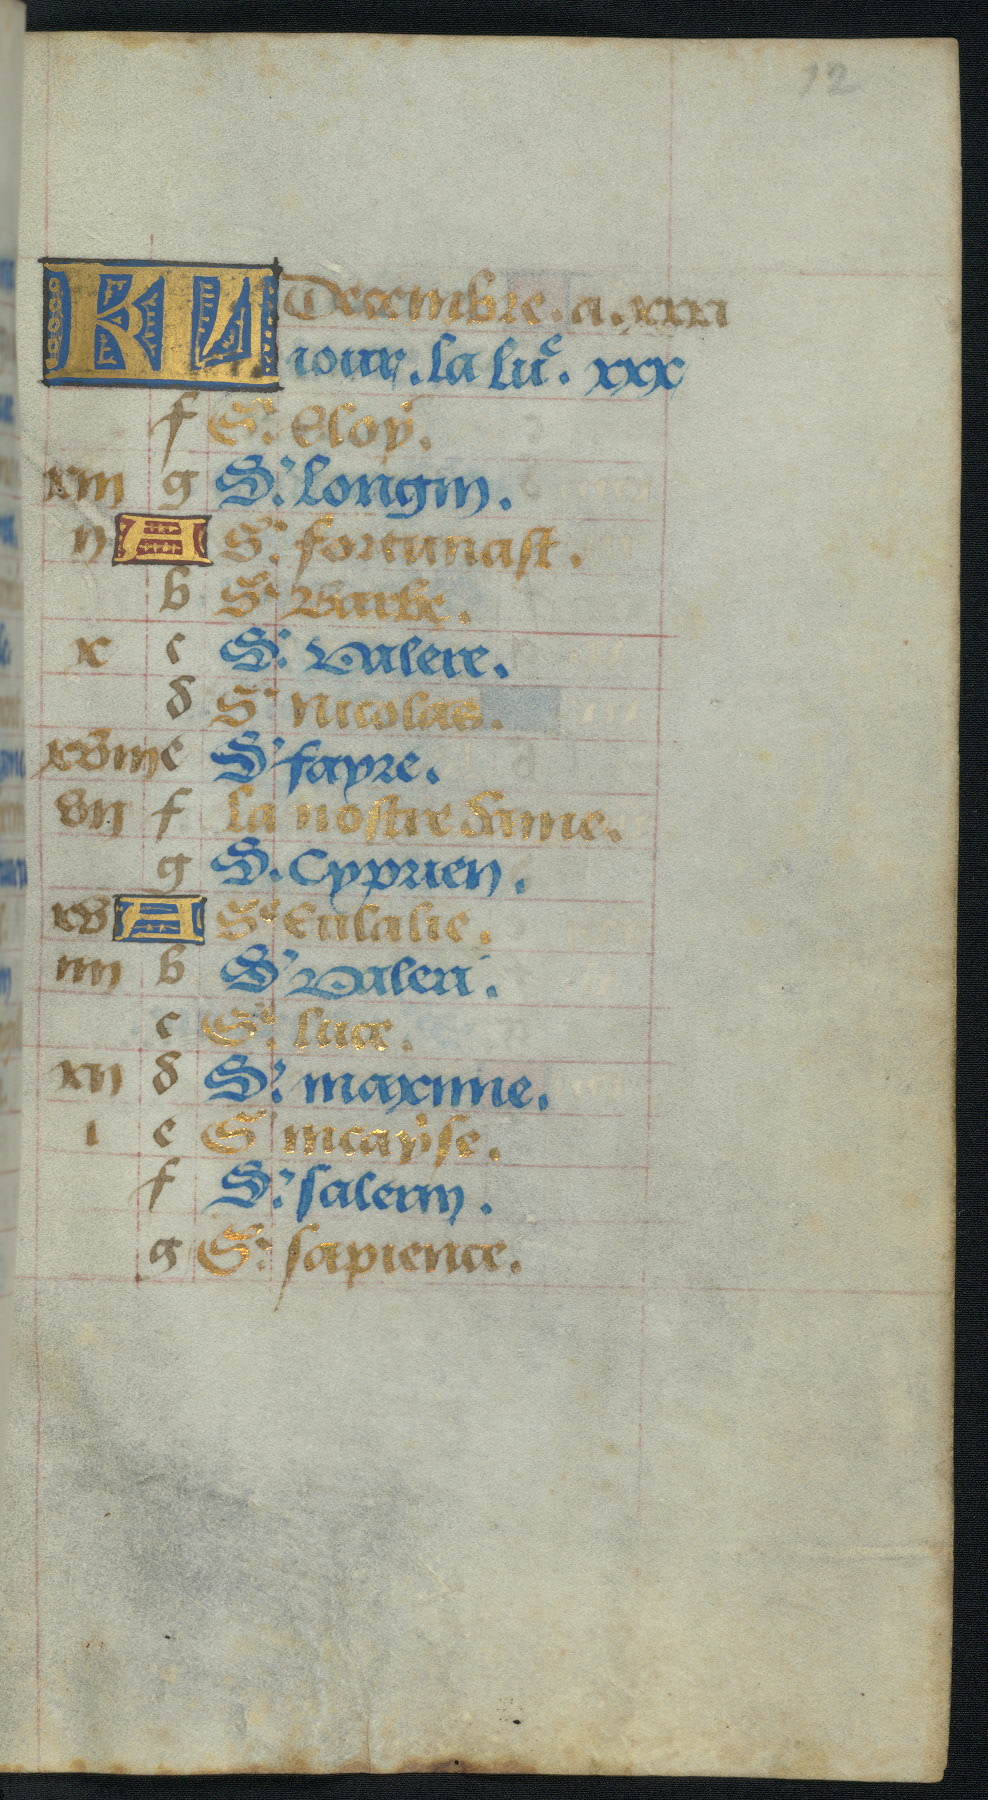 12
KL Decembre. a. xxxi
iour. la lu̅e. xxx
f S. Eloÿ.
xiii g S. longin.
ii A S. fortunast.
b Se Barbe.
x c S. valere.
d S. Nicolas.
xviii e S fayre.
vii f la nostre dame.
g S. Cyprien.
xv A Se Eulalie.
iiii b S valeri.
c Se. luce.
xii d S. maximie.
i e S nicayse.
f S. salerin.
g S. sapience.